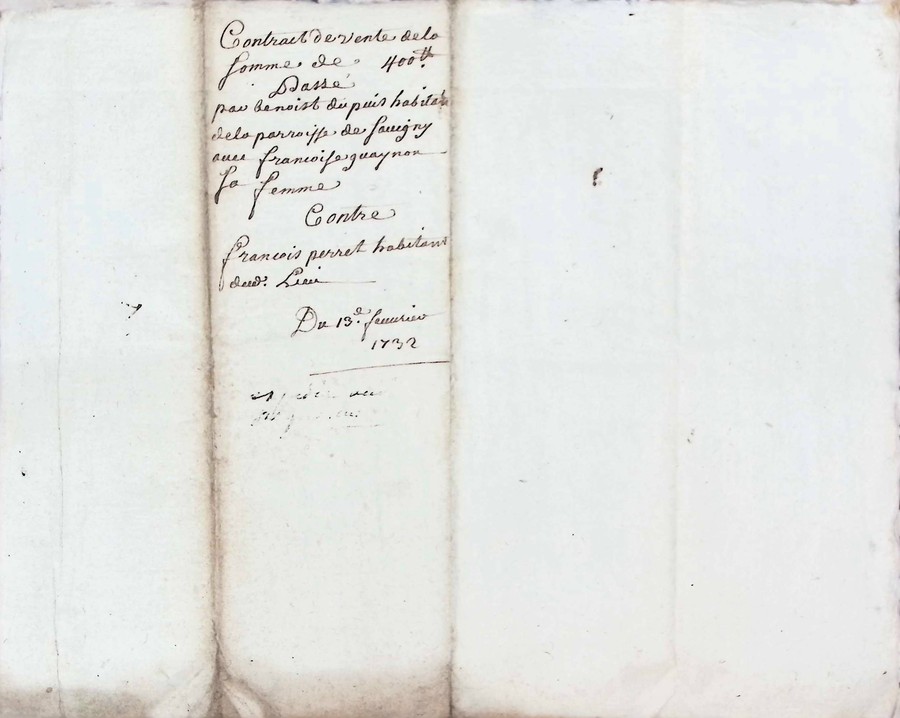 Contract de vente dela
somme de 400tt.
Passé
par benoist dupuis habitant
dela parroisse de Sauigny
auec francoise guaynon
sa femme
Contre
francois perret habitant
dud. Lieu
Du 13e. feuurier
1732